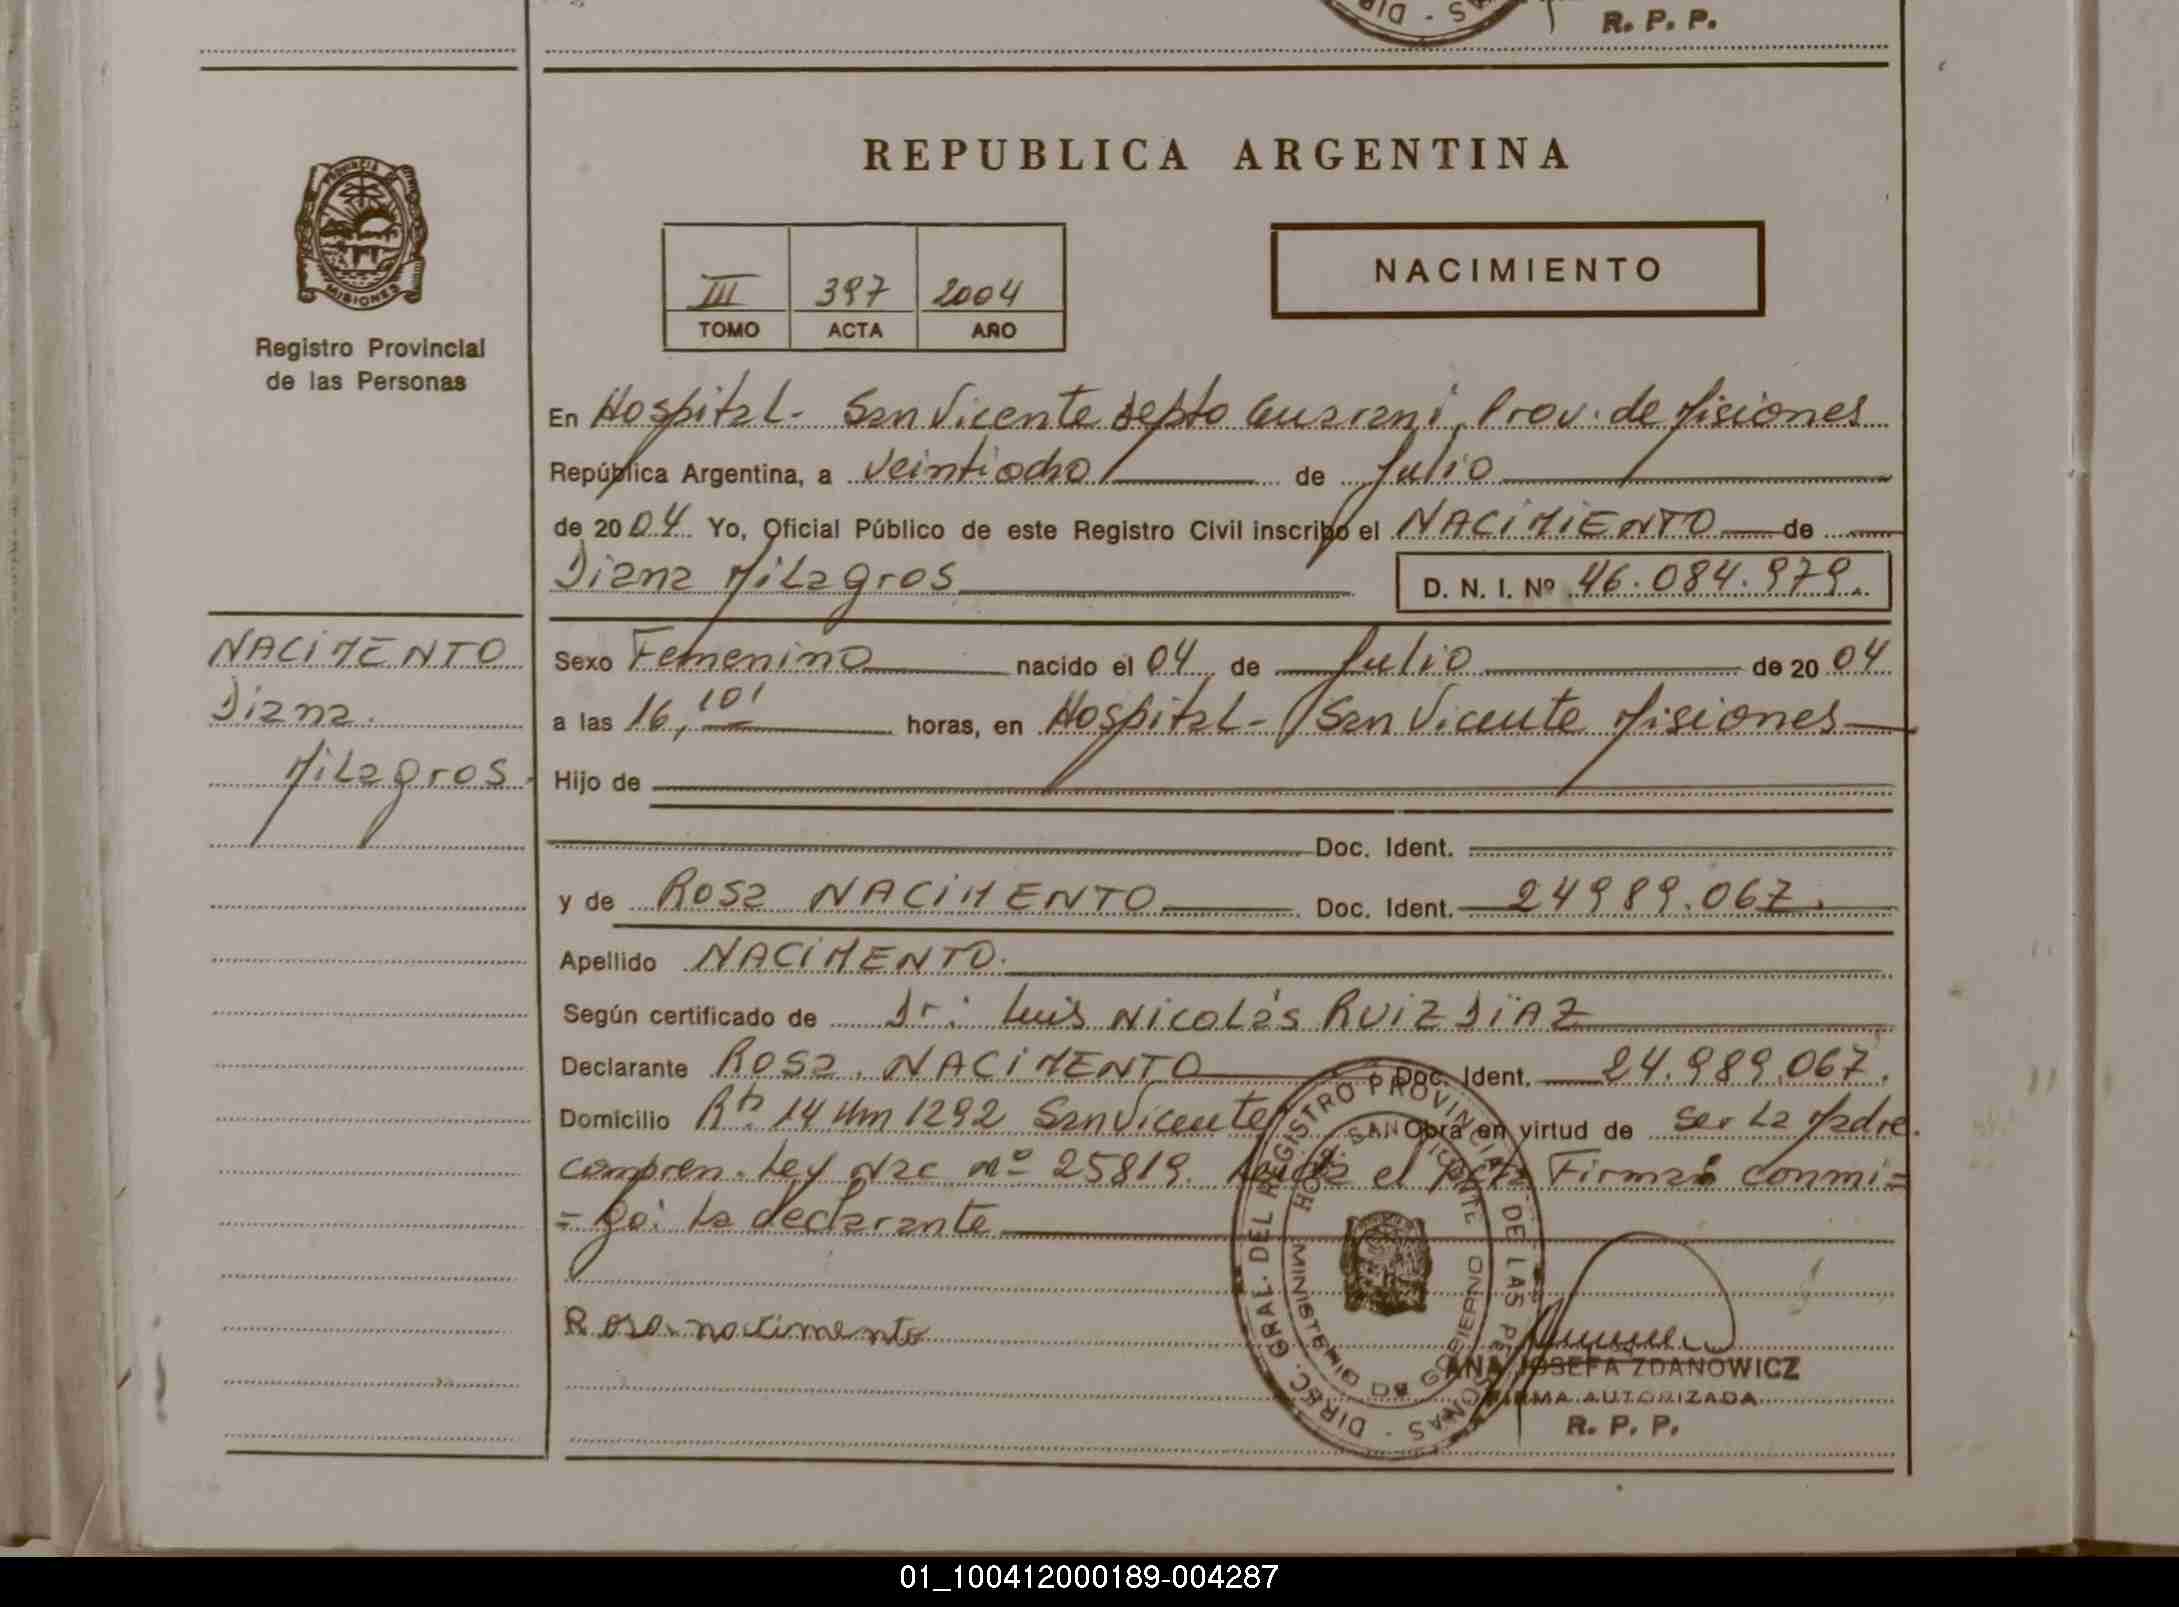 R. P. P.
REPUBLICA ARGENTINA
PROVINCIA DE MISIONES
Registro Provincial
de las Personas
III 397 2004
TOMO ACTA AÑO
NACIMIENTO
En Hospital - San Vicente Depto Guarani, Prov. de Misiones
República Argentina, a veintiocho de Julio
de 2004. Yo, Oficial Público de este Registro Civil inscribo el NACIMIENTO de
Diana Milagros D. N. I. Nº 46.084.979.
NACIMENTO
Diana
Milagros.
Sexo Femenino nacido el 04 de Julio de 2004
a las 16,10' horas, en Hospital - San Vicente Misiones
Hijo de
Doc. Ident.
y de Rosa NACIMENTO Doc. Ident. 24989.067.
Apellido NACIMENTO.
Según certificado de Dr: Luis Nicolás RUIZ DÍAZ
Declarante Rosa NACIMENTO Doc. Ident. 24.989.067.
Domicilio Rta. 14 Km 1292 San Vicente Obra en virtud de ser la Madre.
compren. Ley Nac nº 25819. Leida el acta Firman conmi=
=go: la declarante
Rosa nacimento
DIREC. GRAL. DEL REGISTRO PROVINCIAL DE LAS PERSONAS
HOSP. SAN VICENTE
MINISTERIO DE GOBIERNO
ANA JOSEFA ZDANOWICZ
FIRMA AUTORIZADA
R. P. P.
01_100412000189-004287